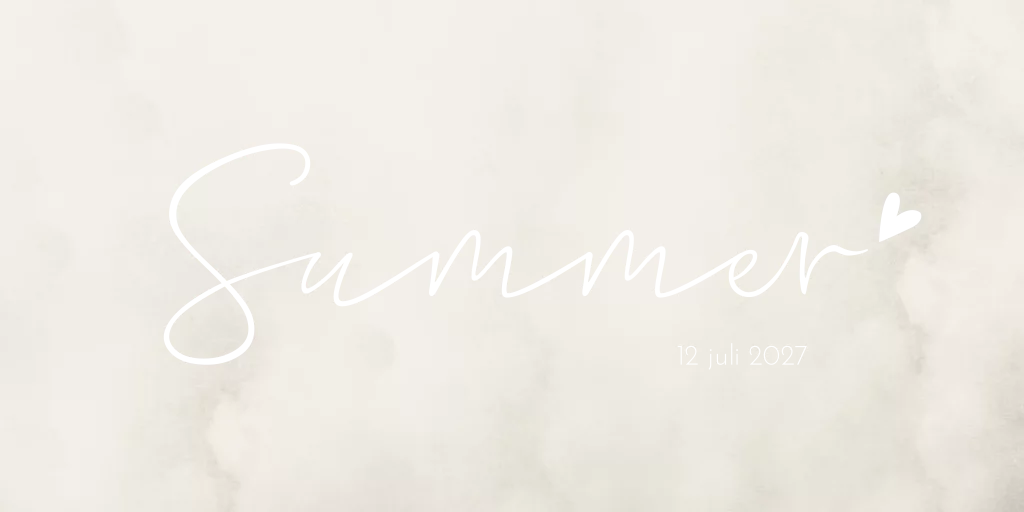 Summer
12 juli 2027